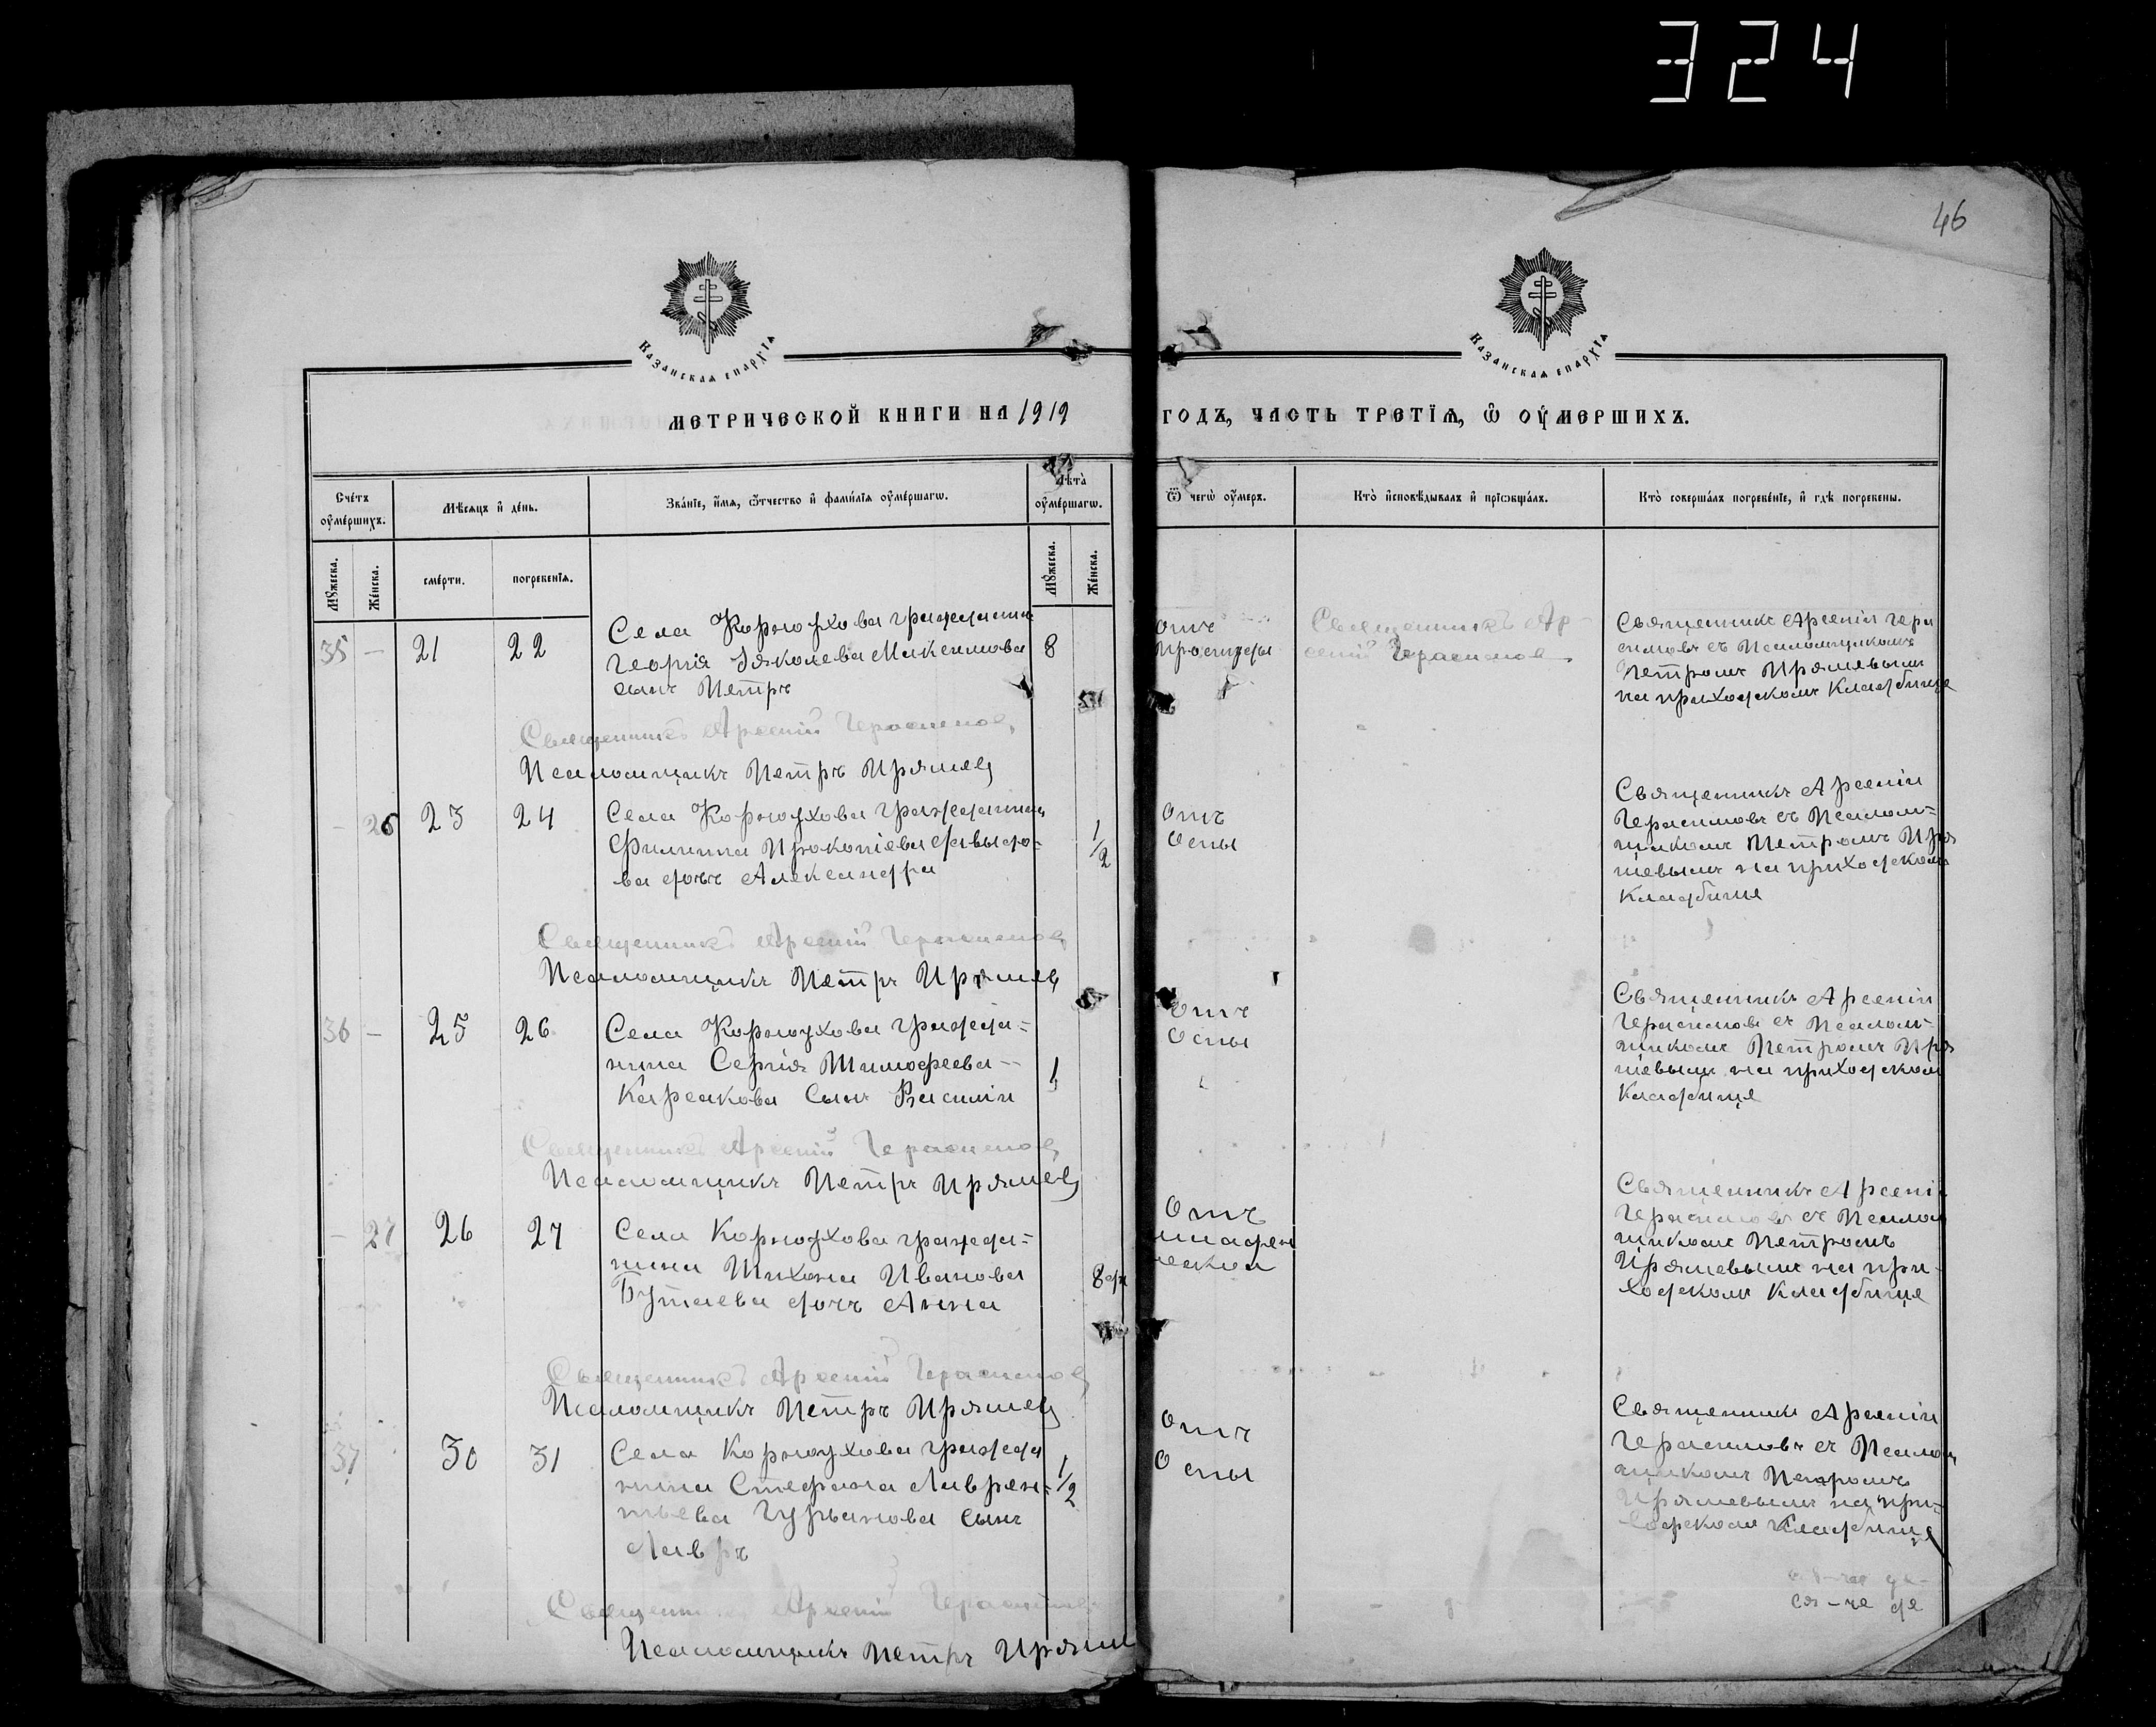 324
46
Казанская епархїѧ
Казанская епархїѧ
метрической книги на 1919
годъ, часть третїѧ, ѡ оумершихъ.
Счетъ оумершихъ.
Мѣсяцъ и день.
Званїе, имя, ѿчество и фамилїя оумершагѡ.
Лѣта оумершагѡ.
Ѿ чегѡ оумеръ.
Кто исповѣдывалъ и прїѡбщалъ.
Кто совершалъ погребенїе, и гдѣ погребены.
Мꙋжеска.
Женска.
смерти.
погребенїя.
Мꙋжеска.
Женска.
35 - 21 22
Села Корноухова гражданина
Георгія Яковлева Максимова
сынъ Петръ
8
Отъ
простуды
Священникъ Ар-
сеній Герасимовъ
Священникъ Арсеній Гера
симовъ съ Псаломщикомъ
Петромъ Пряшевымъ
на приходскомъ Кладбище
Священникъ Арсеній Герасимовъ
Псаломщикъ Петръ Пряшевъ
- 26 23 24
Села Корноухова гражданина
Филиппа Прокопіева Давыдо-
ва дочь Александра
1/2
Отъ
Оспы
Священникъ Арсеній
Герасимовъ съ Псалом-
щикомъ Петромъ Пря
шевымъ на приходскомъ
Кладбище
Священникъ Арсеній Герасимовъ
Псаломщикъ Петръ Пряшевъ
36 - 25 26
Села Корноухова гражда-
нина Сергія Тимофеева
Карсакова Сынъ Василій
1
Отъ
Оспы
Священникъ Арсеній
Герасимовъ съ Псалом-
щикомъ Петромъ Пря
шевымъ на приходском
Кладбище
Священникъ Арсеній Герасимовъ
Псаломщикъ Петръ Пряшевъ
- 27 26 27
Села Корноухова гражда-
нина Тихона Иванова
Бутаева дочь Анна
Отъ
Священникъ Арсеній
Герасимовъ съ Псалом
щикомъ Петромъ
Пряшевымъ на при-
ходскомъ Кладбище
Священникъ Арсеній Герасимовъ
Псаломщикъ Петръ Пряшевъ
37 30 31
Села Корноухова гражда
нина Стефана Лаврен-
тьева Гурьянова сынъ
Лавръ
1/2
Отъ
Оспы
Священникъ Арсеній
Герасимовъ съ Псалом
щикомъ Петромъ
Пряшевымъ на при-
ходском Кладбище
Священникъ Арсеній Герасимовъ
Псаломщикъ Петръ Пряшев